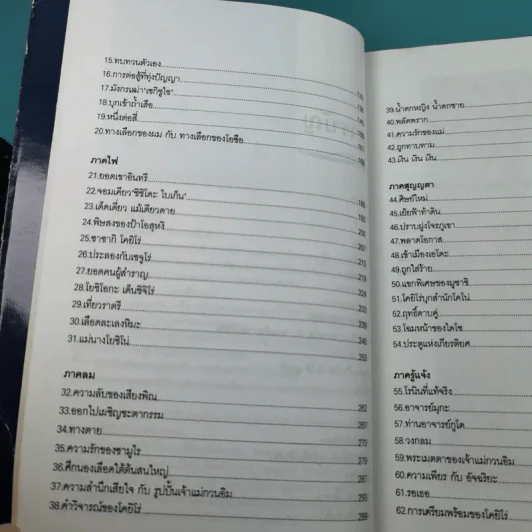 15.ทบทวนตัวเอง
16.การต่อสู้ที่ทุ่งปัญญา
17.มังกรเฒ่า"เซกิชูไซ"
18.บุกเข้าถ้ำเสือ
19.หนึ่งต่อสี่
20.ทางเลือกของผม กับ ทางเลือกของโอซือ
ภาคไฟ
21.ยอดเขาอินทรี
22.จอมเคียว"ชิชิโดะ ไบเก็น"
23.เด็ดเดี่ยว แม้เดียวดาย
24.พิษสงของป้าโอสุหงิ
25.ซาซากิ โคยิโร่ 213
26.ประลองกับเซจูโร่
27.ยอดคนผู้สำราญ 219
28.โยชิโอกะ เด็นชิจิโร่ 224
29.เที่ยวราตรี 233
30.เลือดละเลงหิมะ 239
31.แม่นางโยชิโน่
ภาคลม
32.ความลับของเสียงพิณ 262
33.ออกไปเผชิญชะตากรรม 267
34.ทางตาย 273
35.ความรักของซามูไร 279
36.ศึกนองเลือดใต้ต้นสนใหญ่ 287
37.ความสำนึกเสียใจ กับ รูปปั้นเจ้าแม่กวนอิม 293
38.คำวิจารณ์ของโคยิโร่ 299
39.น้ำตกหญิง น้ำตกชาย
40.พลัดพราก
41.ความรักของแม่
42.ถูกทาบทาม
43.เงิน เงิน เงิน
ภาคสุญญตา
44.ศิษย์ใหม่
45.เย้ยฟ้าท้าดิน
46.ปราบฝูงโจรภูเขา
47.พลาดโอกาส
48.เข้าเมืองเอโดะ
49.ถูกใส่ร้าย
50.แขกพิเศษของมูซาชิ
51.โคยิโร่บุกสำนักโคโน่
52.ฤทธิ์ดาบคู่
53.โฉมหน้าของไดโซ
54.ประตูแห่งเกียรติยศ
ภาครู้แจ้ง
55.โรนินที่แท้จริง
56.อาจารย์มุกะ
57.ท่านอาจารย์กูโด
58.วงกลม
59.พระเมตตาของเจ้าแม่กวนอิม
60.ความเพียร กับ อัจฉริยะ
61.รอเธอ
62.การเตรียมพร้อมของโคยิโร่